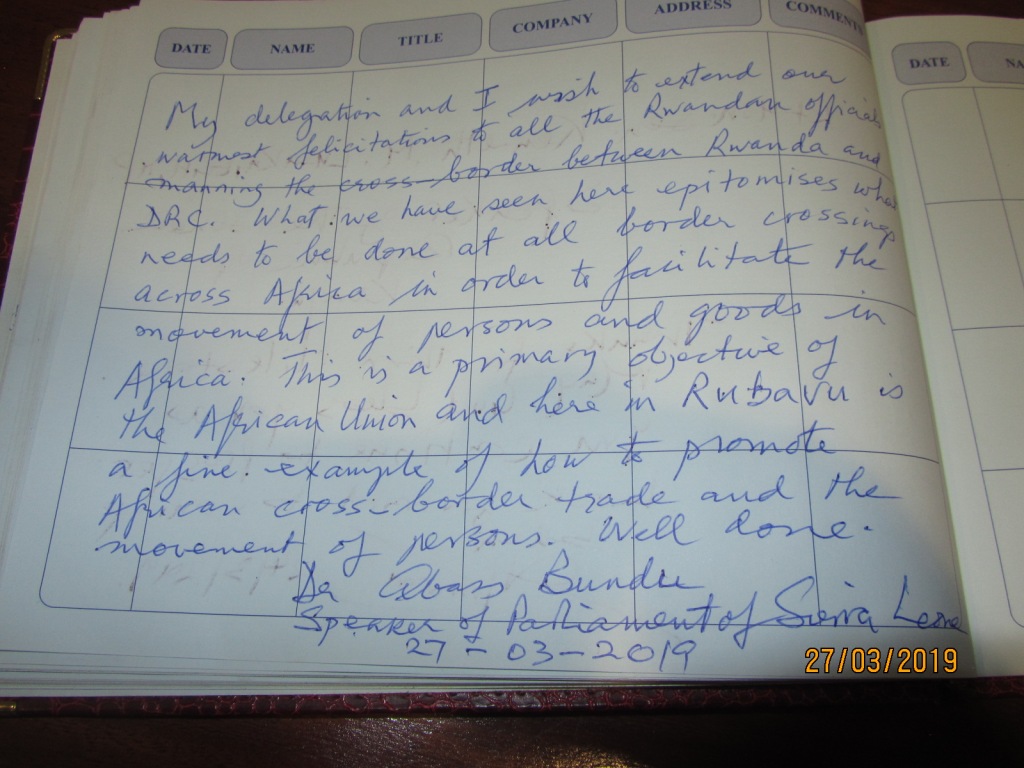 DATE NAME TITLE COMPANY ADDRESS COMMENTS
DATE NA
My delegation and I wish to extend our
warmest felicitations to all the Rwandan officials
manning the cross-border between Rwanda and
DRC. What we have seen here epitomises what
needs to be done at all border crossings
across Africa in order to facilitate the
movement of persons and goods in
Africa. This is a primary objective of
the African Union and here in Rubavu is
a fine example of how to promote
African cross-border trade and the
movement of persons. Well done.
Dr Abass Bundu
Speaker of Parliament of Sierra Leone
27-03-2019
27/03/2019